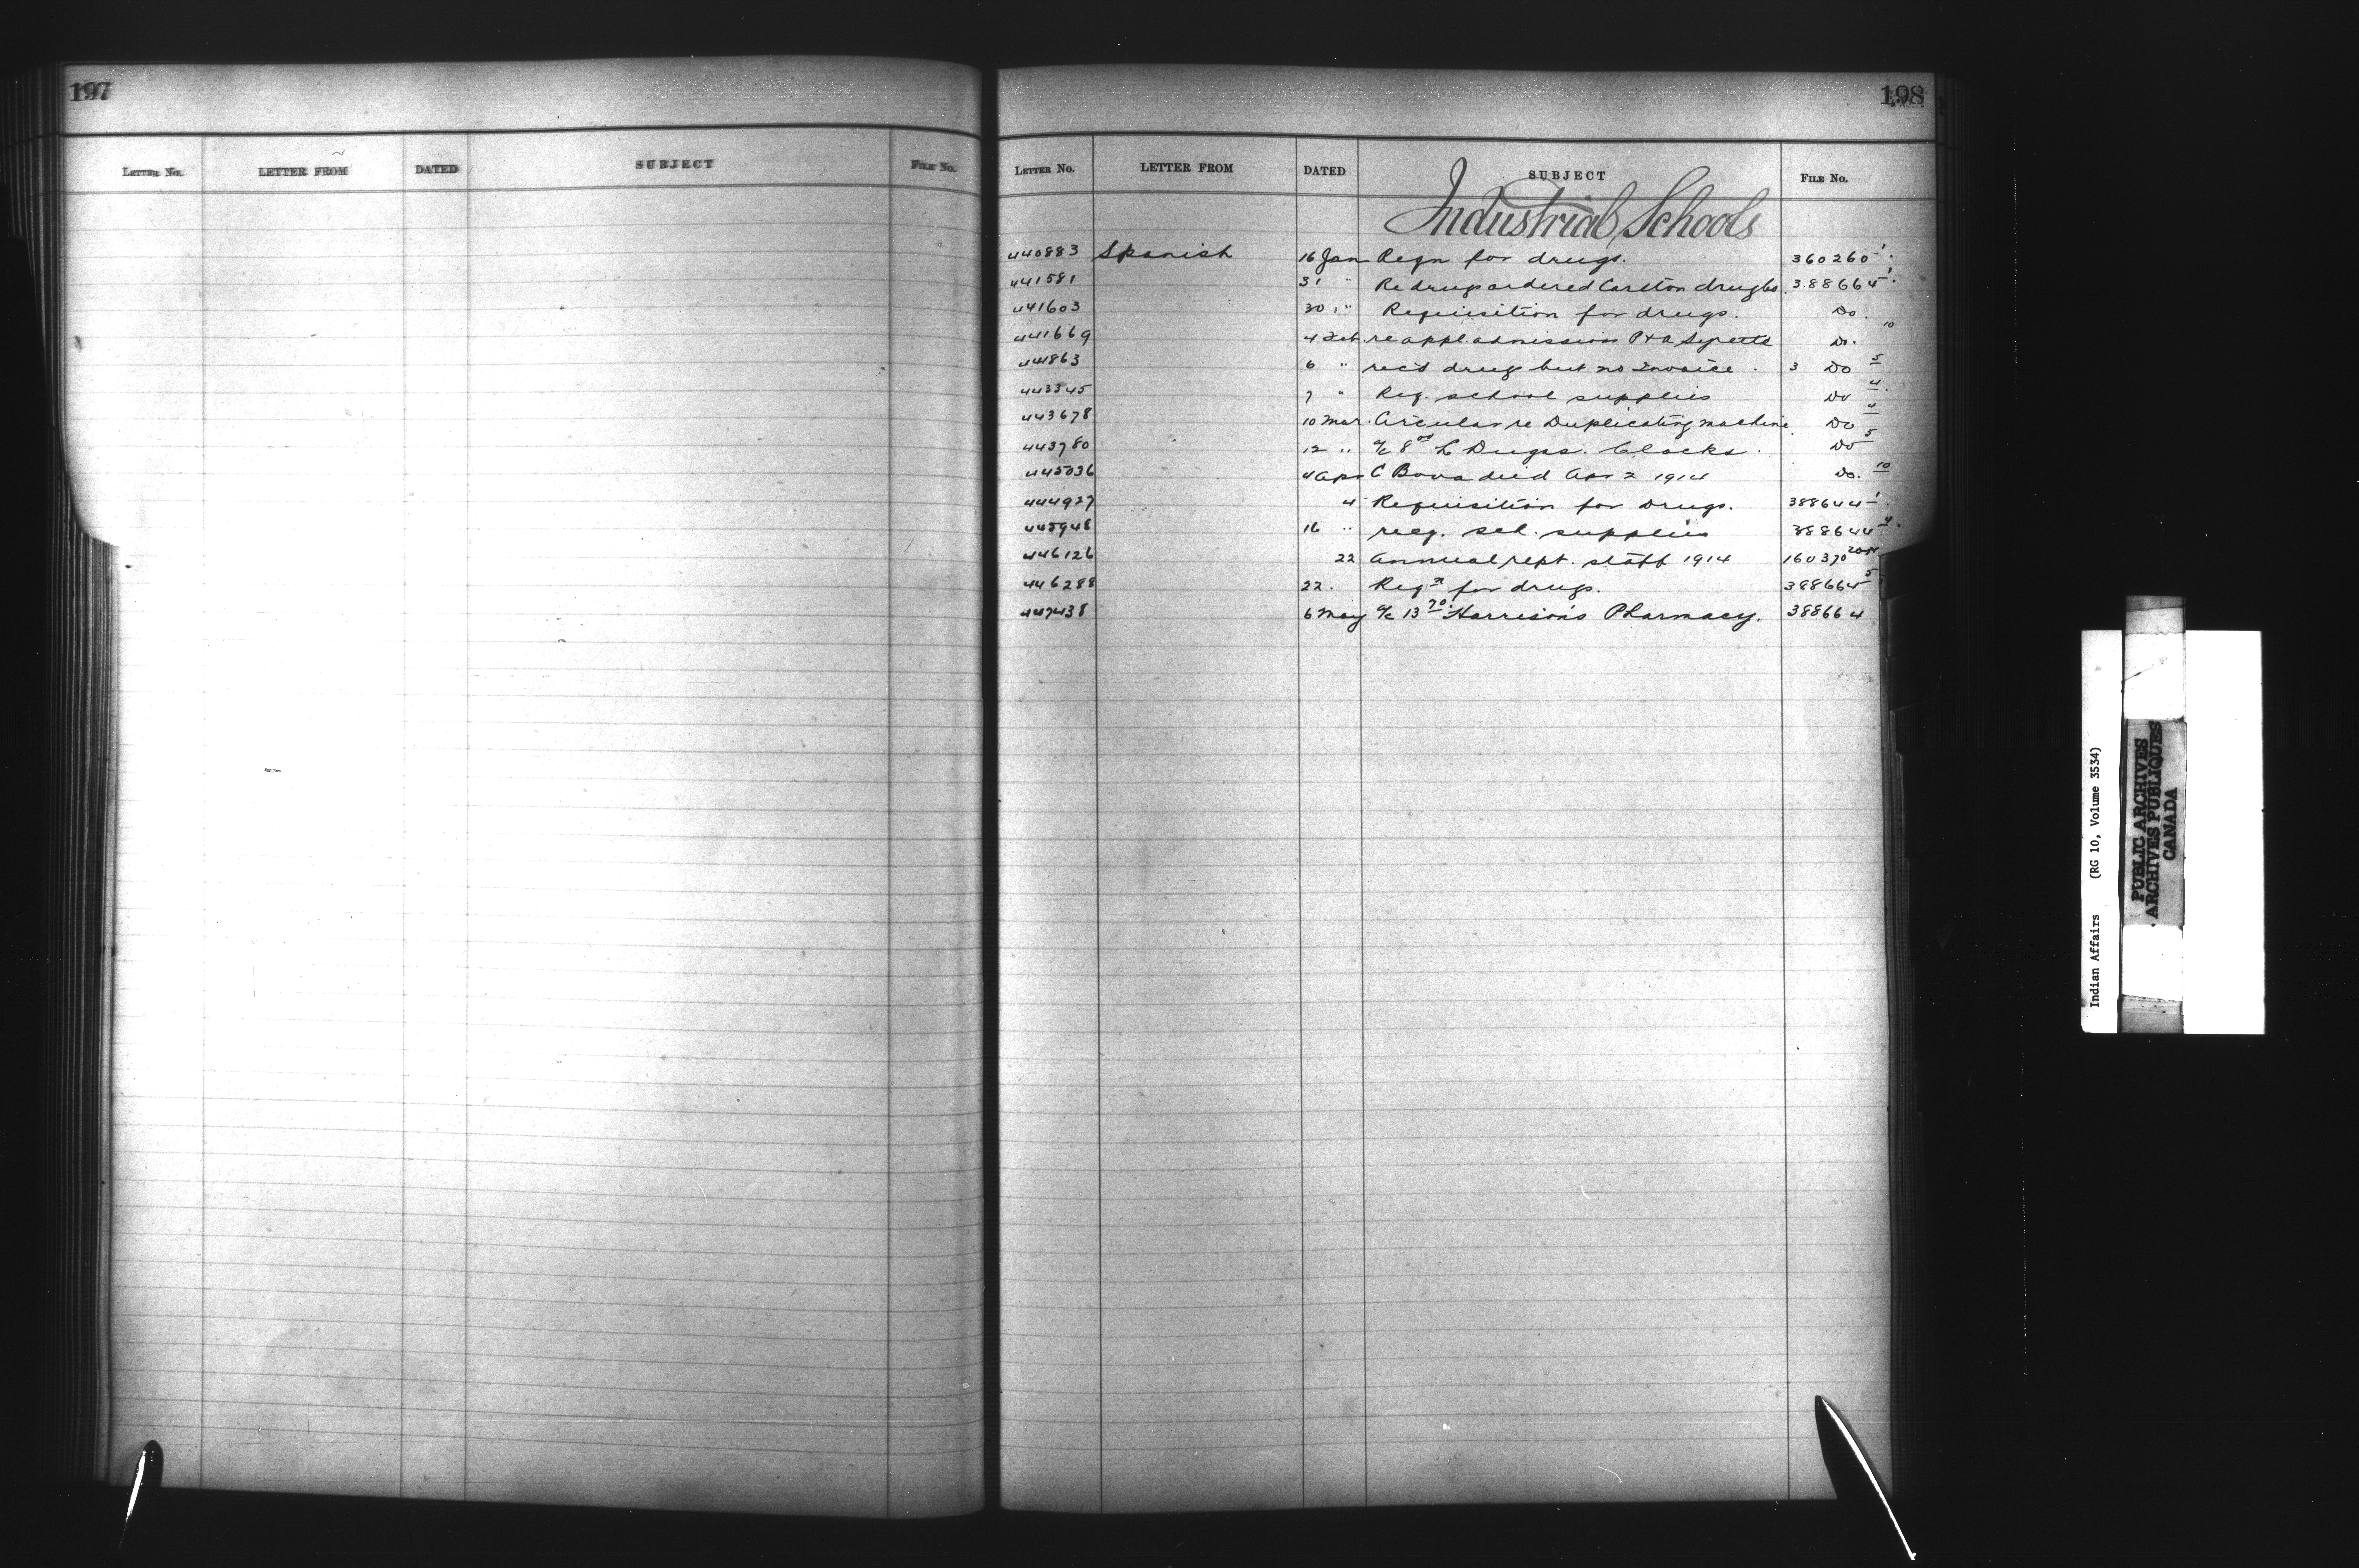 197
LETTER NO. LETTER FROM DATED SUBJECT FILE NO.
198
LETTER NO. LETTER FROM DATED SUBJECT FILE NO.
Industrial Schools
440883 Spanish 16 Jan Reqn for drugs. 360260-1
441581 31 " Re drugs ordered Carlton drug 388664-1
441603 30 " Requisition for drugs. Do.
441669 4 Feb. re appl. admission P & A Do. 10
441863 6 " rec'd drugs but no Invoice. 3 Do 5
443345 7 " Req. school supplies Do 4
443678 10 Mar. Circular re Duplicating machine Do 4
443780 12 " a/c 8 Drugs. Clocks. Do 5
445036 4 Apr C died Apr 2 1914 Do. 10
444927 4 Requisition for Drugs. 388644-1
445948 16 " req. sch. supplies 388644-4
446126 22 Annual rept. staff 1914 160370
446288 22. Reqn for drugs. 388664-5
447438 6 May a/c 13 70 Harrison's Pharmacy. 388664
Indian Affairs (RG 10, Volume 3534)
PUBLIC ARCHIVES
ARCHIVES PUBLIQUES
CANADA